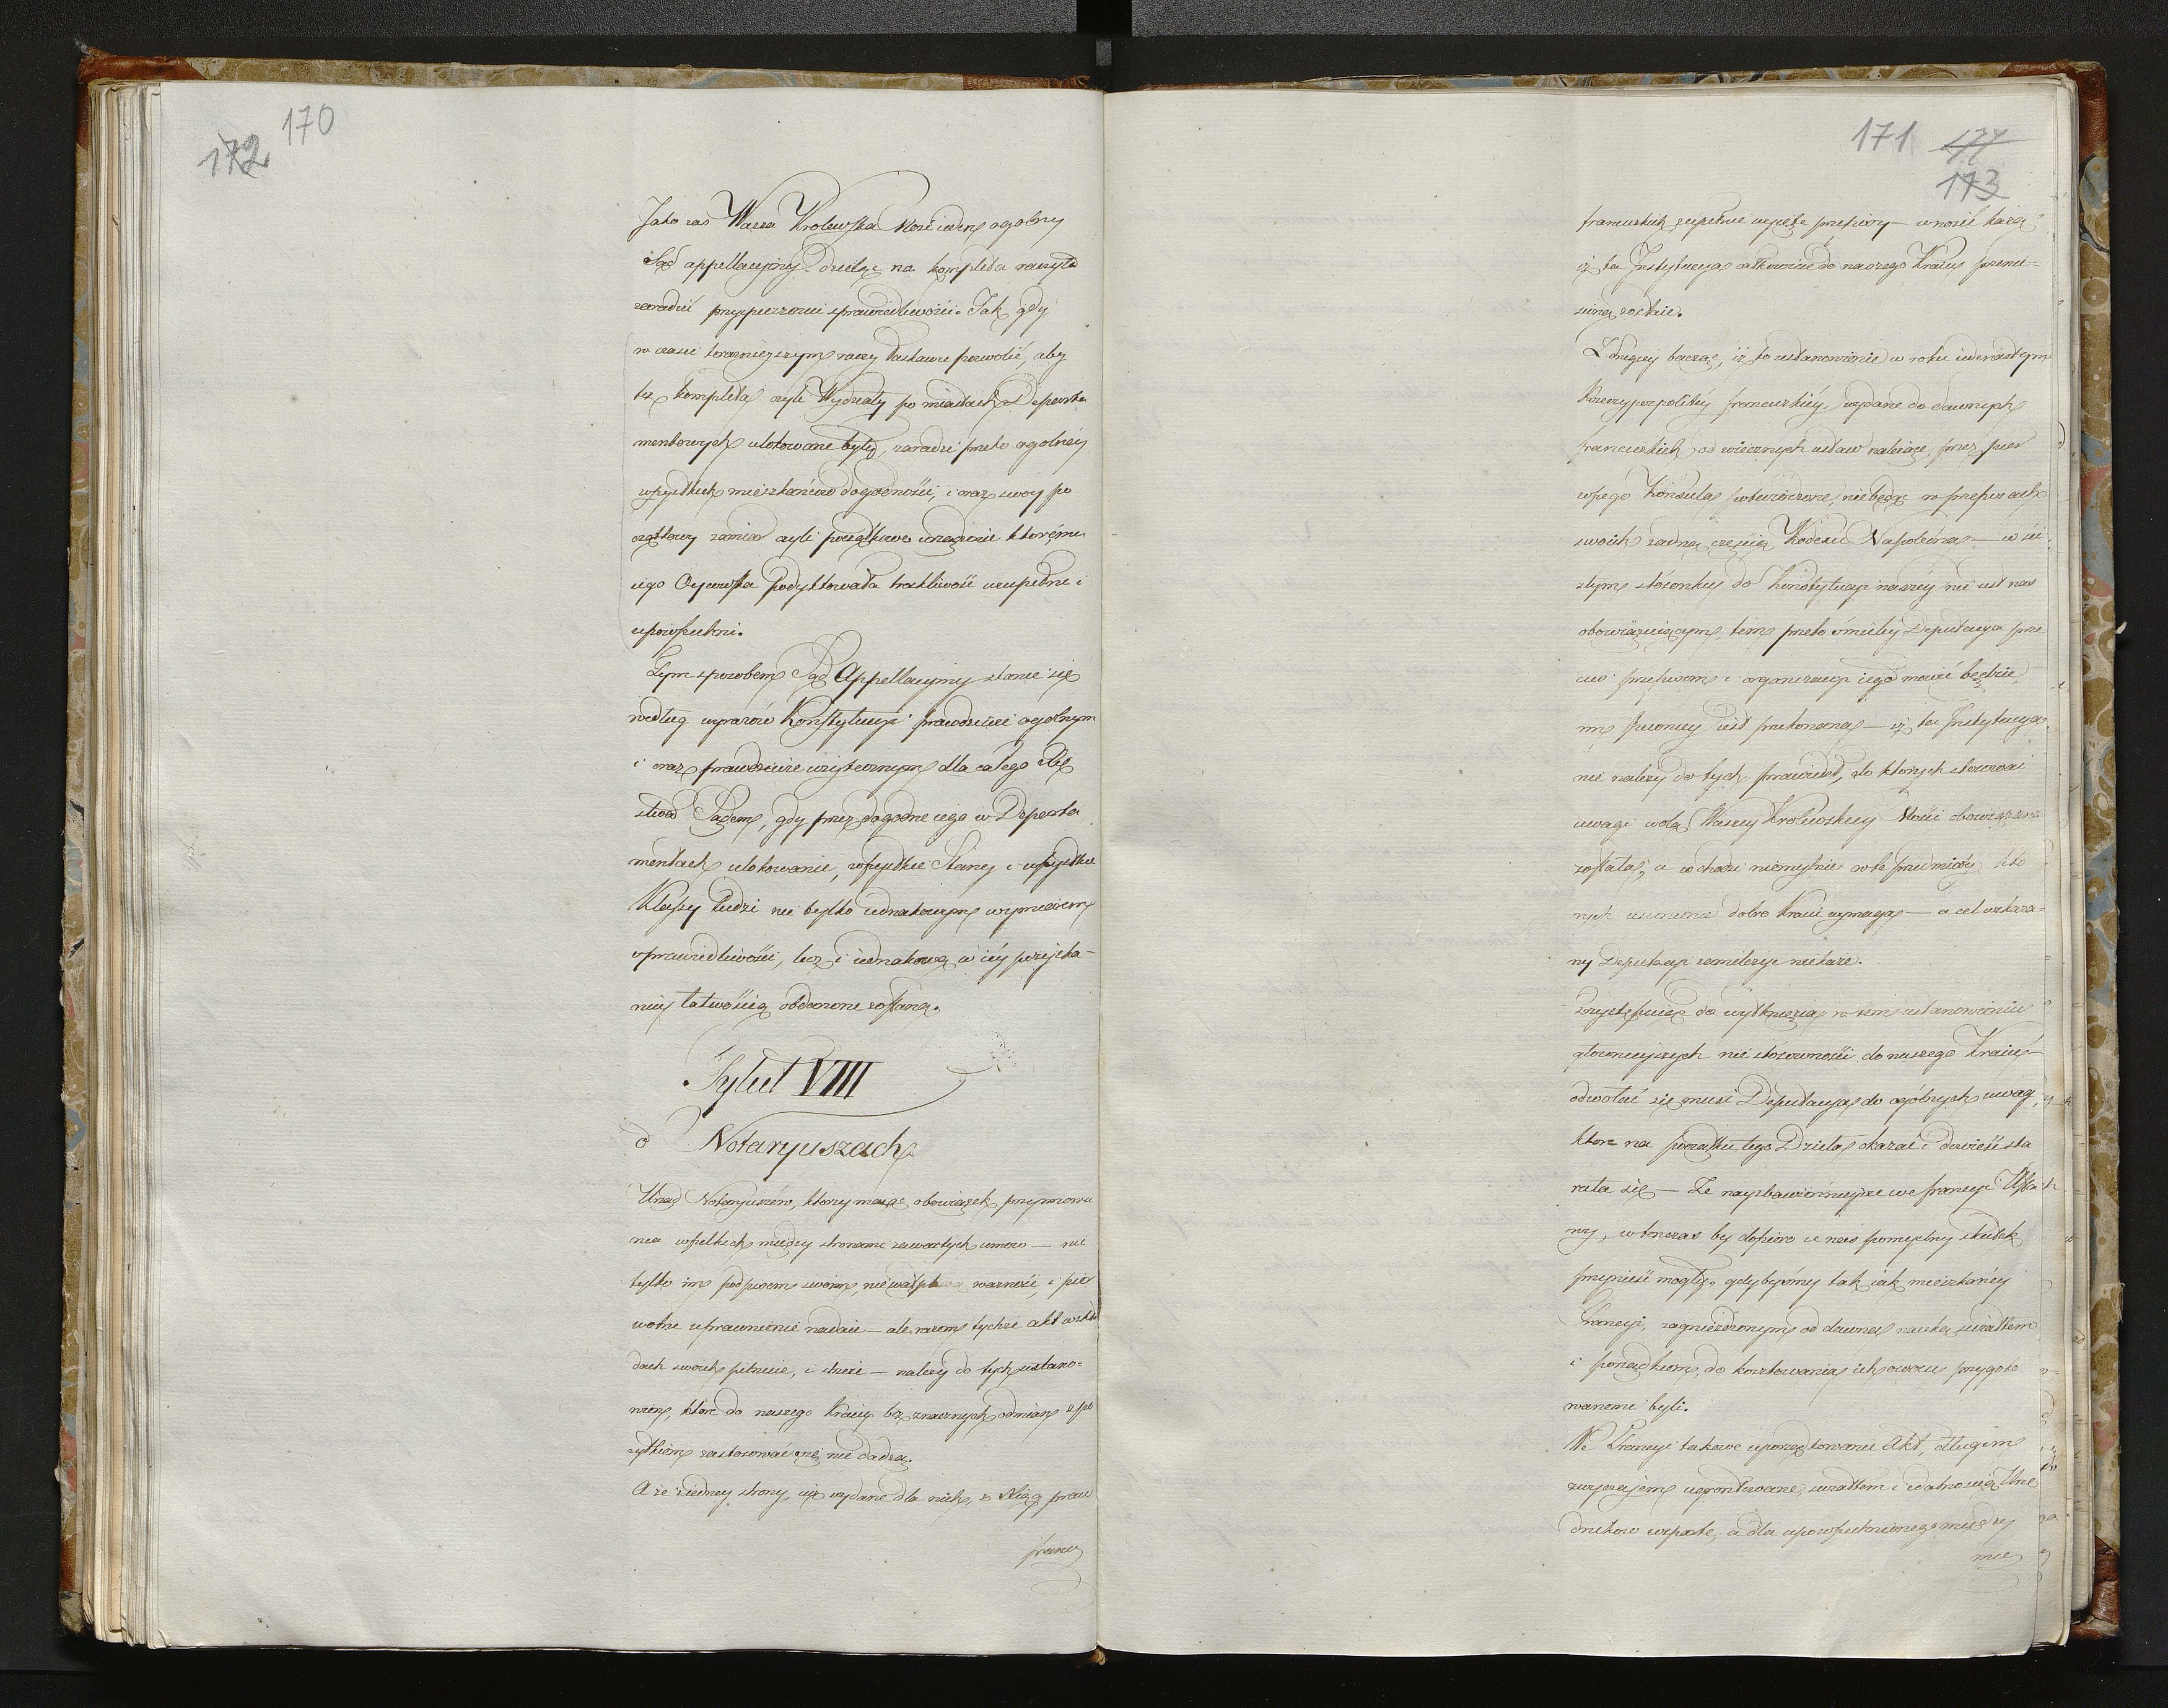 170
172
Jako zas Wasza Krolewska Mość ieden ogolny
Sąd appellacyiny dzieląc na kompleta raczyła
zaradzić przyspieszeniu sprawiedliwości. Tak gdy
w czasie toraznieyszym raczy łaskawie pozwolić, aby
też kompleta czyli Wydziały po miastach Departa
mentowych ulokowane były, zaradzi przeto ogolney
wszystkich mieszkańców dogodności, i oraz swoy po
czątkowy zamiar czyli początkowe urządzenie któremu
iego Oycowska podyktowała troskliwość uzupełni i
upowszechni.
Tym sposobem Sąd Appellacyiny stanie się
według wyrazów Konstytucyi prawdziwie ogolnym
i oraz prawdziwie użytecznym dla całego Xię
stwa Sądem, gdy przez dogodne iego w Departa
mentach ulokowanie, wszystkie Stany i wszystkie
Klassy ludzi nie tylko iednakowym wymiarem
sprawiedliwości, lecz i iednakową w iéy pozyska-
niu łatwością obdarzone zostaną.
Tytuł VIII
o Notaryuszach
Urząd Notaryuszów, ktorzy maiąc obowiązek przyimowa
nia wszelkich między stronami zawartych umow — nie
tylko im podpisem swoim, niewątpliwą ważność, i pier
wotne uprawnienie nadaie — ale razem tychże akt w skła
dach swoich pilnuie, i strzeże — należy do tych ustano=
wien, które do naszego Kraiu bez znacznych odmian z po
żytkiem zastosować się nie dadzą.
A że z iedney strony, iuż wydane dla nich, z Xiąg praw
francu
171 177
173
francuzkich zupełnie wzięte przepisy — wnosić każą
iż ta Instytucya całkowicie do naszego Kraiu przenie-
siona zostaie.
Z drugiey bacząc, iż to ustanowienie w roku iedenastym
Rzeczypospolitéy francuzkiéy wydane do dawnych
francuzkich od wiecznych ustaw należące, przez pier
wszego Konsula potwierdzone, nie będąc w przepisach
swoich żadną częścią Kodexu Napoleona — w ści
słym stosonku do Konstytucyi naszéy nie iest nas
obowiązuiącym, tem przeto śmieley Deputacya prze
ciw przepisom i organizacyi iego mowić będzie
im pewniey iest przekonana — iż ta Instytucya
nie należy do tych prawideł, do ktorych stosowai
uwagi wolą Waszey Krolewskiey Mości obowiązana
została, a wchodzi niemylnie w te przedmioty któ
rych usunienia dobro Kraiu wymaga — a cel wskaza=
ny Deputacyi zamilczyć nie każe.
Przystępuiąc do wytknięcia w tém ustanowieniu
głownieyszych nie stosowności do naszego Kraiu —
odwołać się musi Deputacya do ogólnych uwag,
ktore na początku tego Dzieła okazać i dowieść sta
rała się — Że nayzbawiennieysze we francyi Usta
wy, wtenczas by dopiero u nas pomyślny skutek
przynieść mogły, gdybyśmy tak iak mieszkańcy
Francyi, zagnieżdżonym od dawna nauką światłem
i porządkiem, do kosztowania ich owocu przygoto
wanemi byli.
We Francyi takowe uporządkowanie Akt, długim
zwyczaiem ugruntowane, światłem i zdatnością Urzę
dnikow wsparte, a dla upowszechnionego między
mie